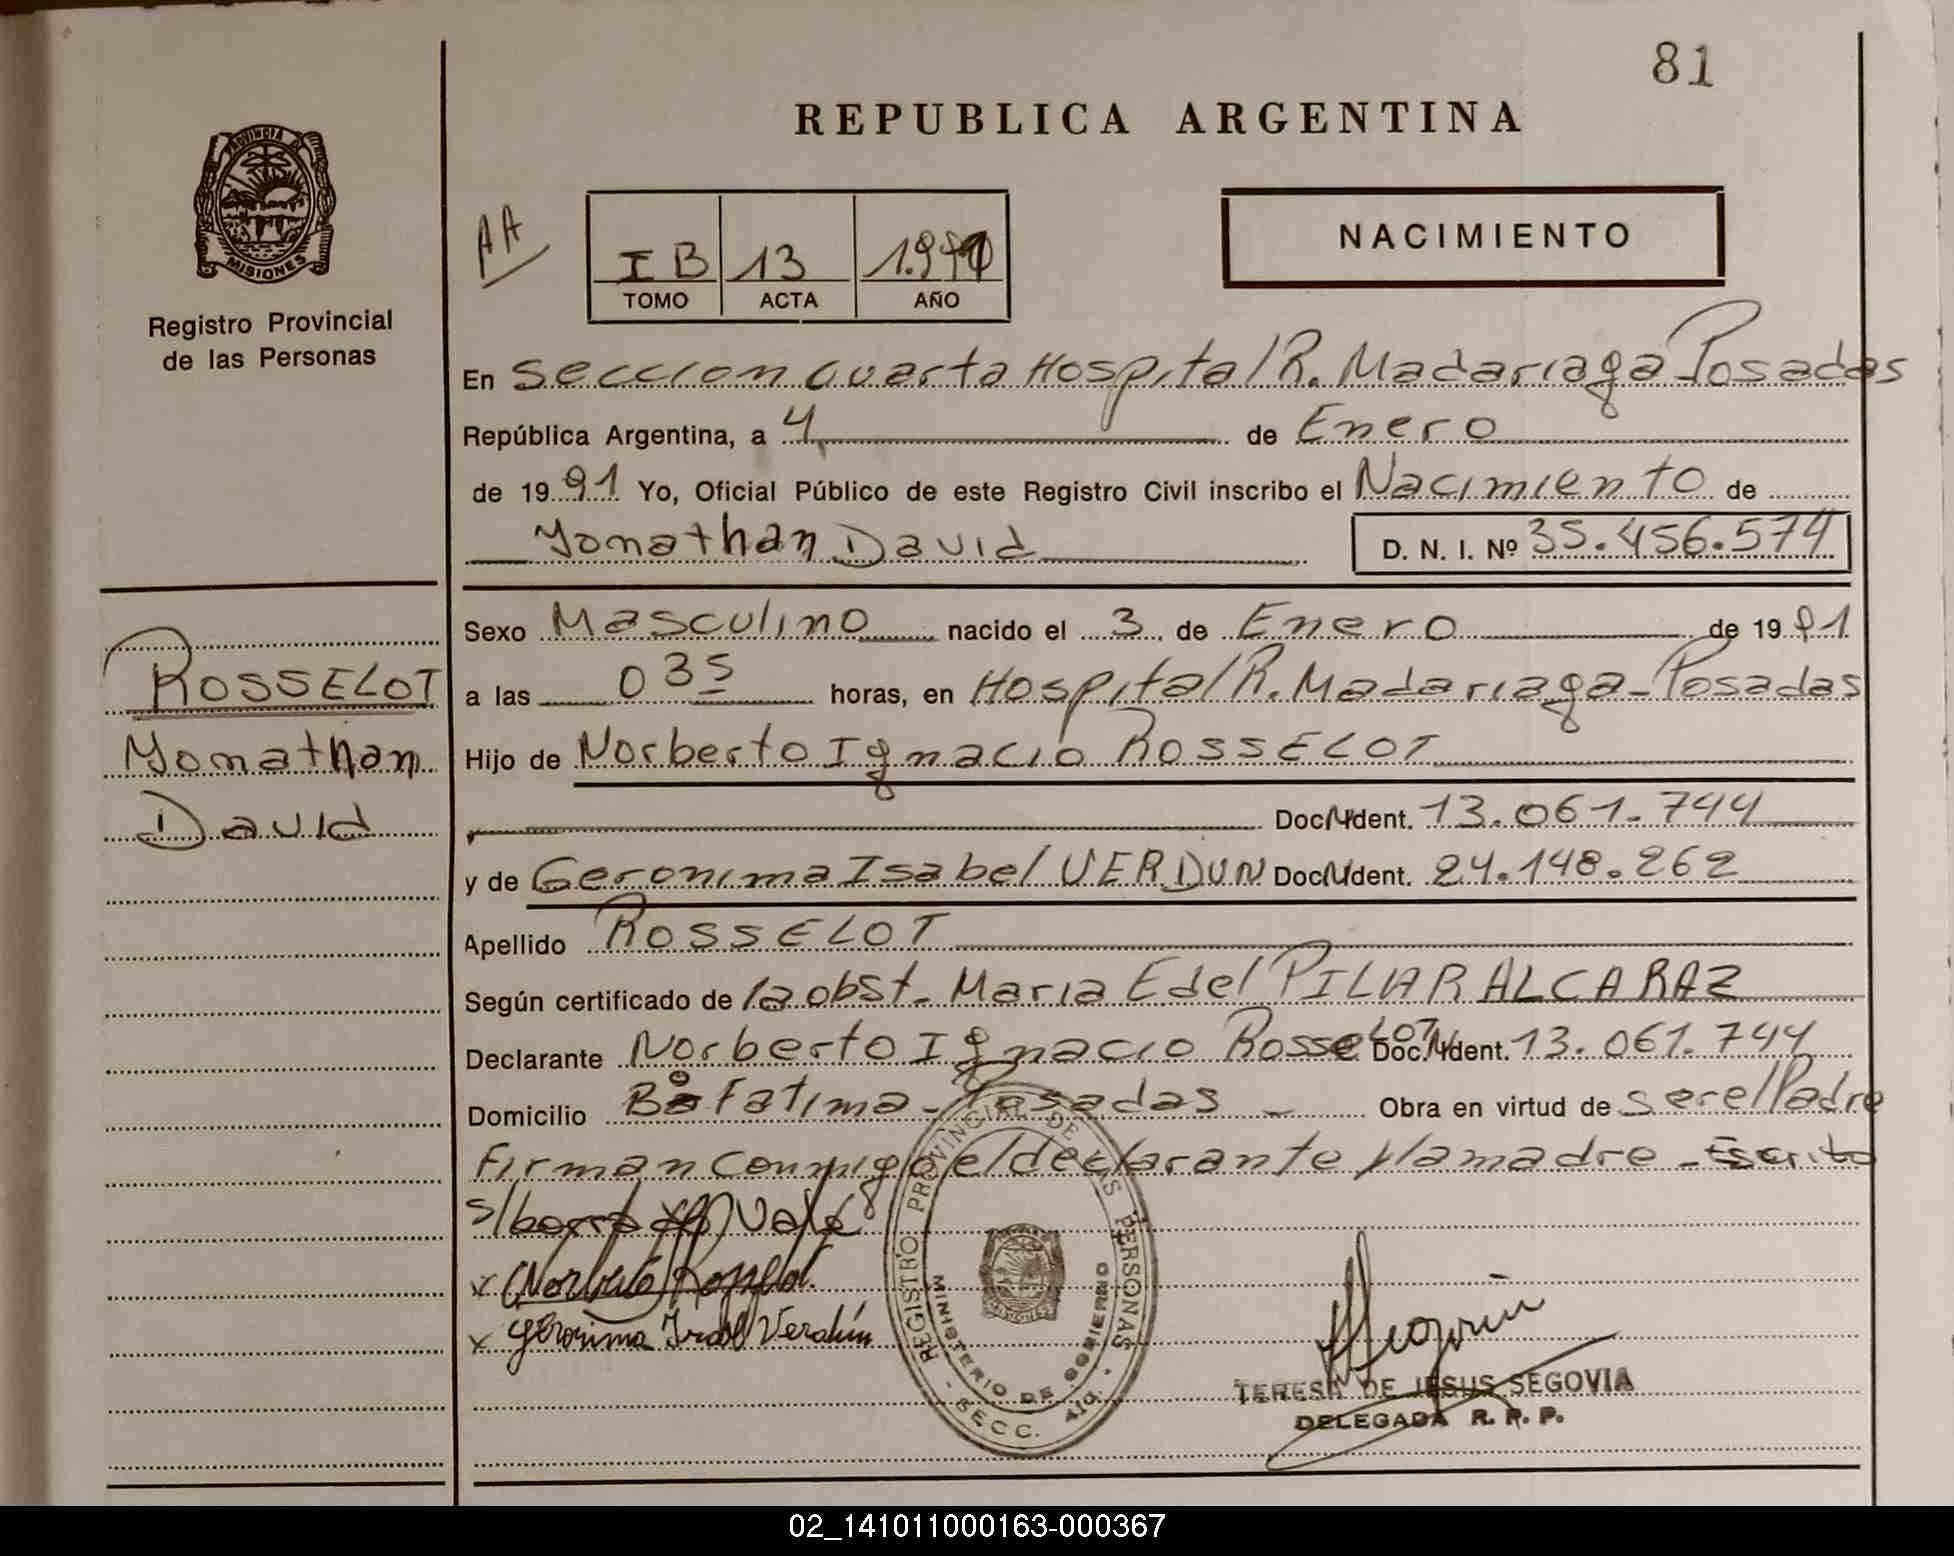 81
REPUBLICA ARGENTINA
PROVINCIA DE
MISIONES
Registro Provincial
de las Personas
AA
I B 13
TOMO ACTA AÑO
NACIMIENTO
En Seccion Cuarta Hospital R. Madariaga Posadas
República Argentina, a 4 de Enero
de 1991 Yo, Oficial Público de este Registro Civil inscribo el Nacimiento de
Yonathan David D. N. I. Nº 35.456.574
Sexo Masculino nacido el 3 de Enero de 1991
ROSSELOT
Yonathan
David
a las 0 35 horas, en Hospital R. Madariaga - Posadas
Hijo de Norberto Ignacio ROSSELOT
Doc. N. Ident. 13.061.744
y de Geronima Isabel VERDUN Doc. N. Ident. 24.148.262
Apellido ROSSELOT
Según certificado de la obst. Maria E del PILAR ALCARAZ
Declarante Norberto Ignacio RosseLOT Doc. N. Ident. 13.061.744
Domicilio Bº Fatima - Posadas - Obra en virtud de ser el Padre
Firman conmigo el declarante y la madre - Escrito
s/ borrado Vale
x Norberto Rosselot
x Geronima Isabel Verdún
REGISTRO PROVINCIAL DE LAS PERSONAS
MINISTERIO DE GOBIERNO
- SECC. 4ta. -
TERESA DE JESUS SEGOVIA
DELEGADA R. P. P.
02_141011000163-000367